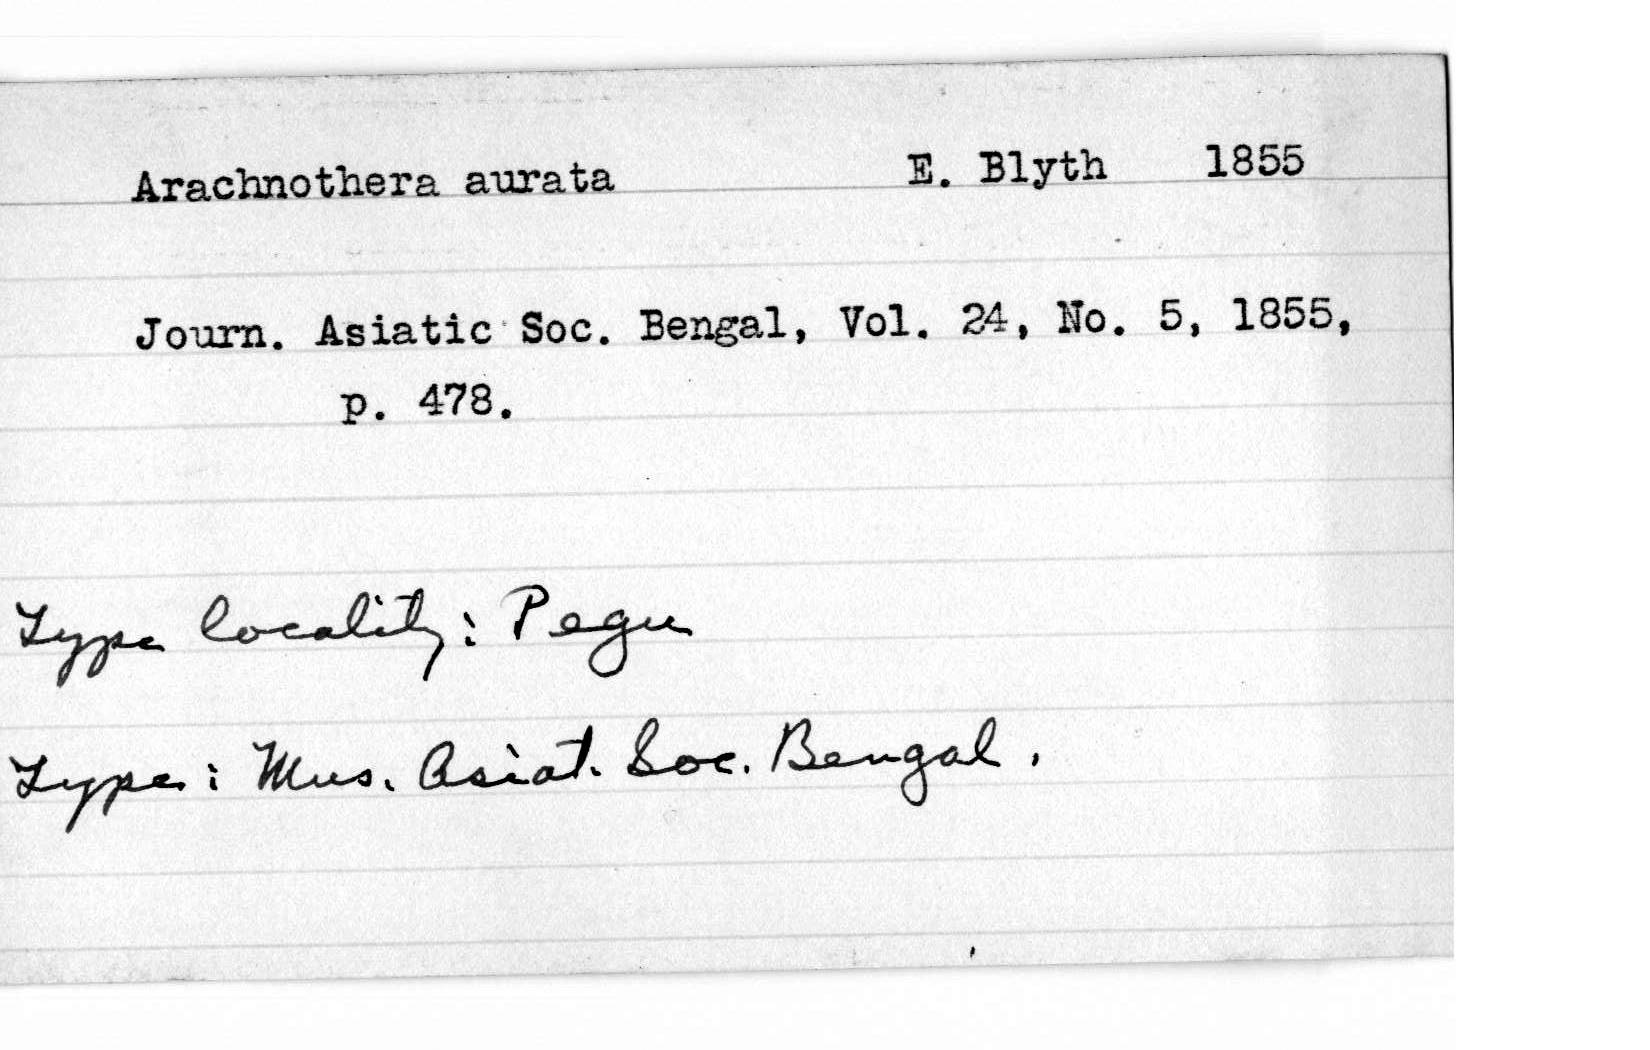 Arachnothera aurata E. Blyth 1855
Journ. Asiatic Soc. Bengal, Vol. 24, No. 5, 1855,
p. 478.
Type locality: Pegu
Type: Mus. Asiat. Soc. Bengal.